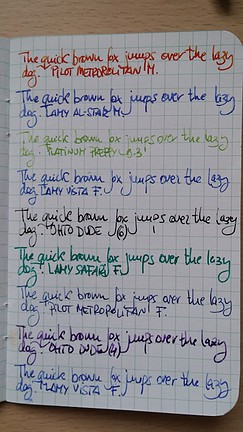 The quick brown fox jumps over the lazy
dog. PILOT METROPOLITAN M.
The quick brown fox jumps over the lazy
dog. LAMY AL-STAR M.
The quick brown fox jumps over the lazy
dog. PLATINUM PREPPY 0.3
The quick brown fox jumps over the lazy
dog. LAMY VISTA F.
The quick brown fox jumps over the lazy
dog. OHTO DUDE
The quick brown fox jumps over the lazy
dog. LAMY SAFARI F.
The quick brown fox jumps over the lazy
dog. PILOT METROPOLITAN F.
The quick brown fox jumps over the lazy
dog. OHTO DUDE
The quick brown fox jumps over the lazy
dog. LAMY VISTA F.